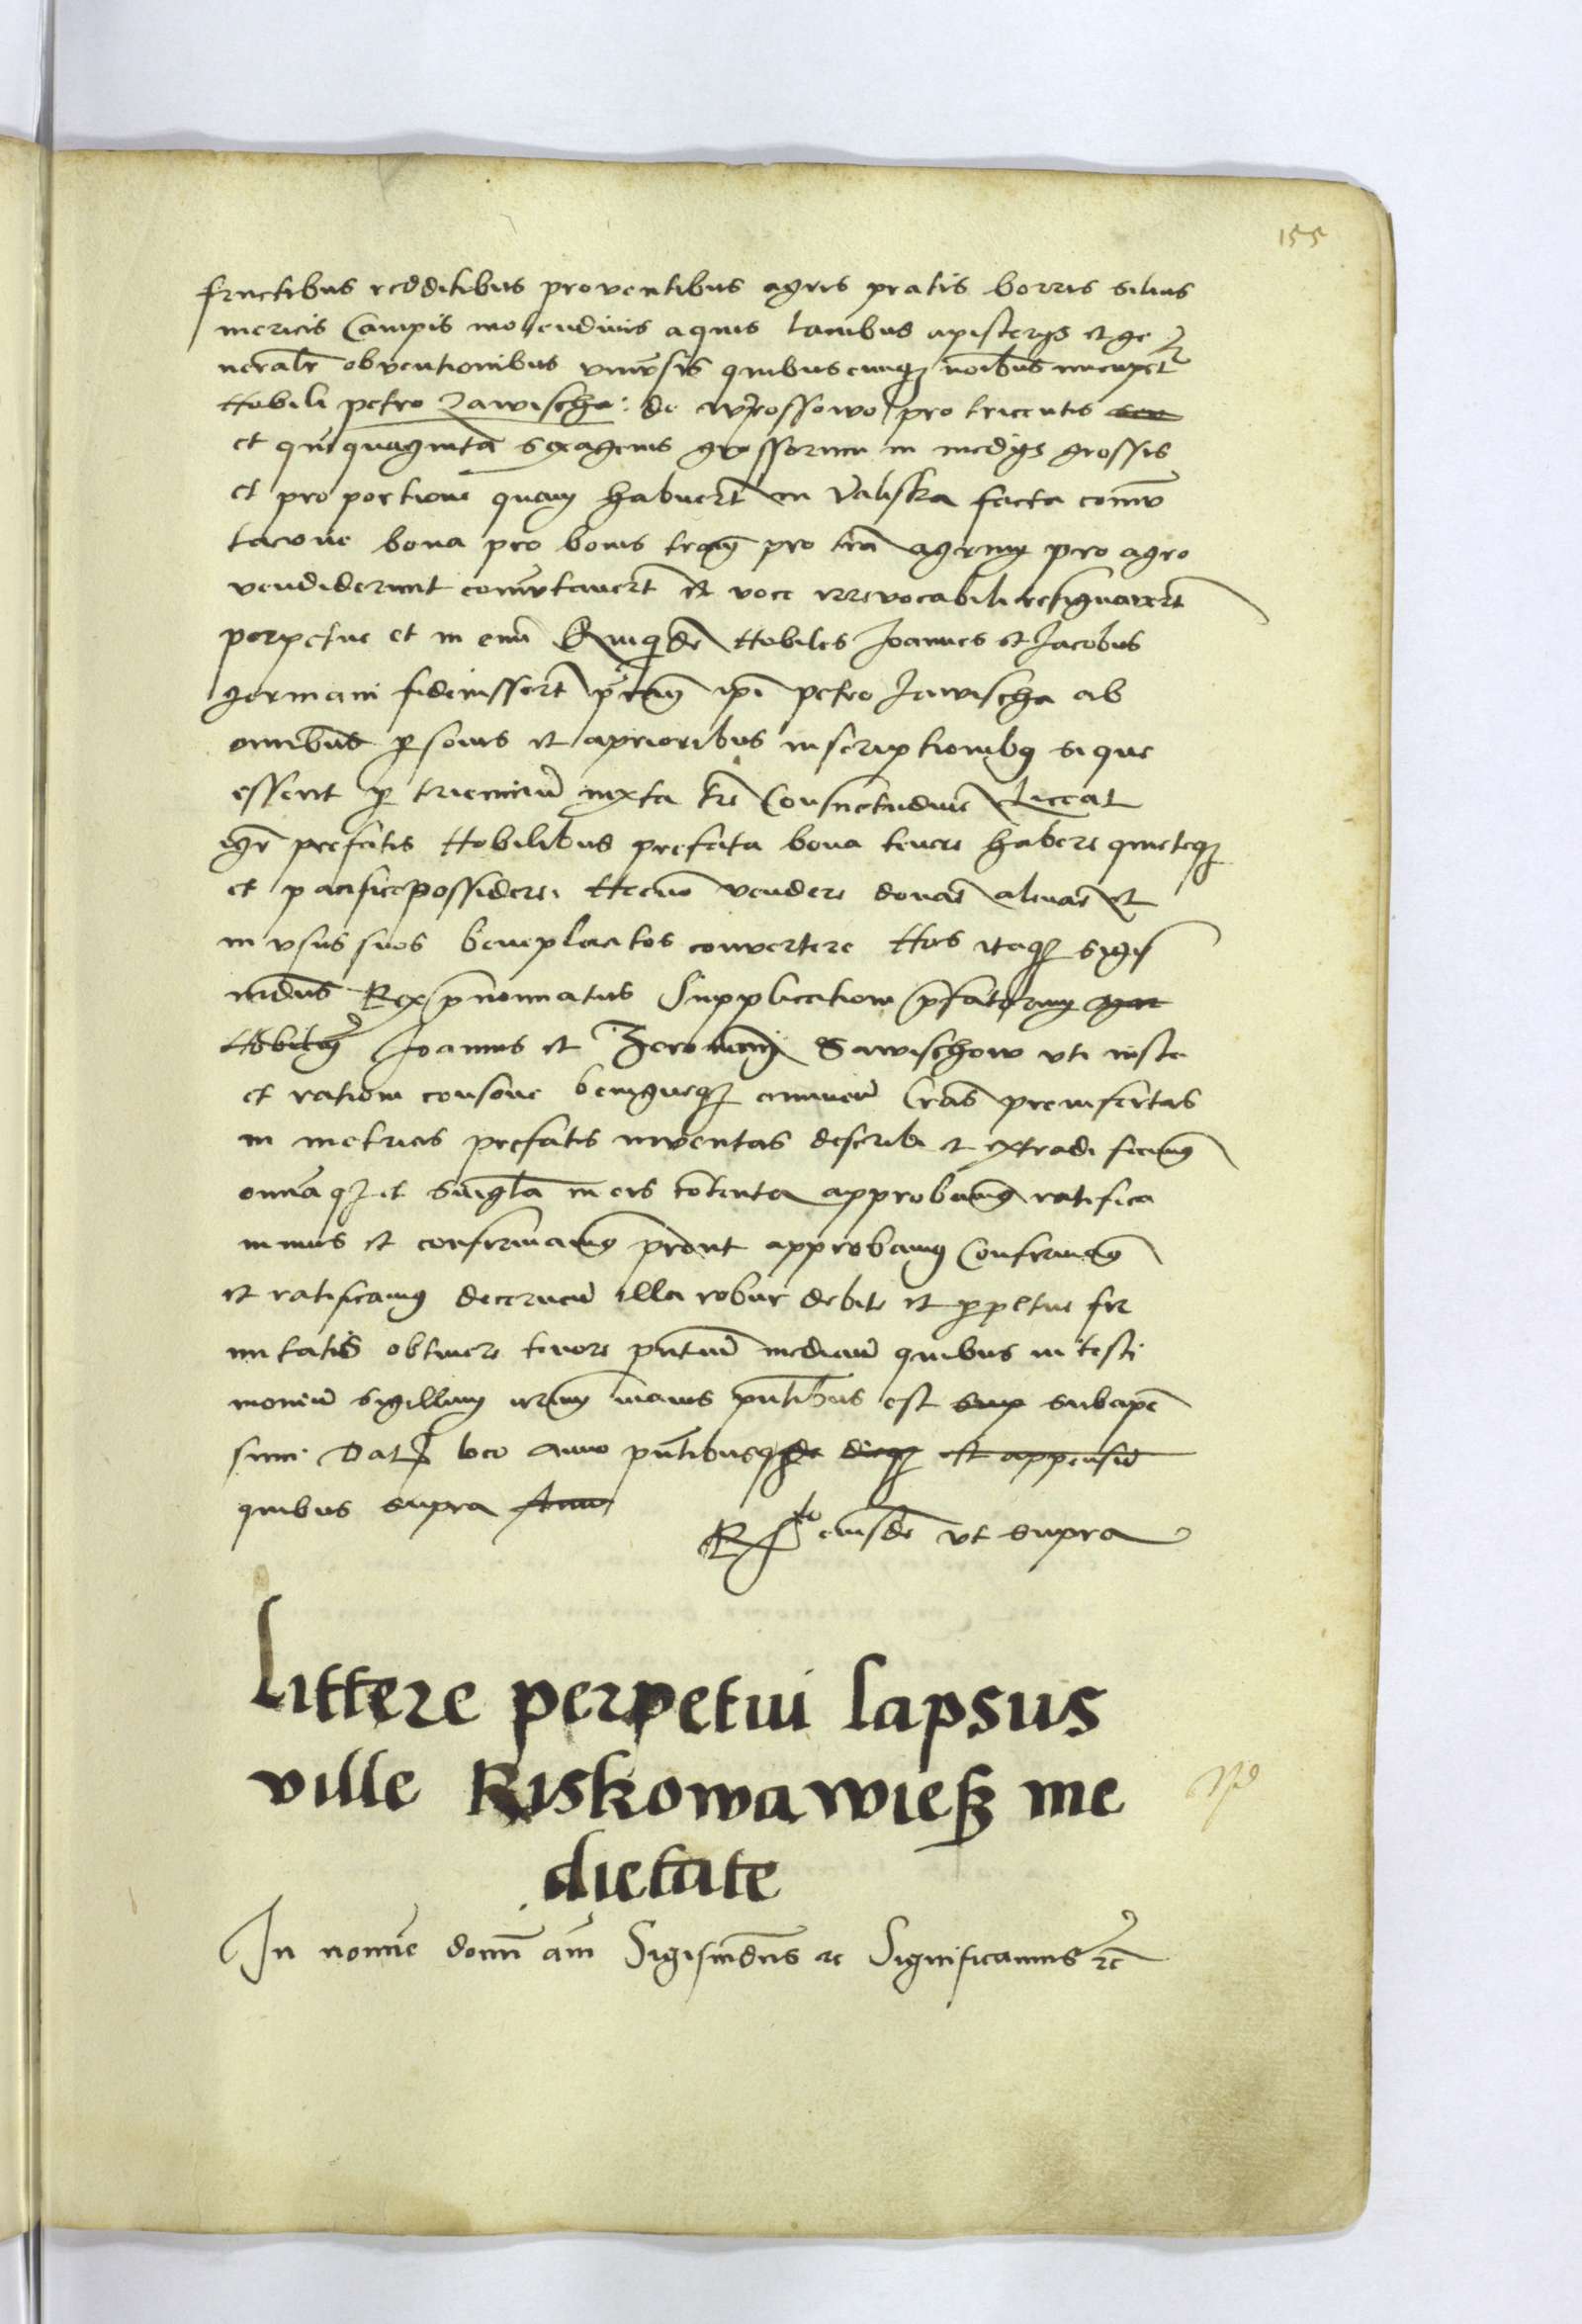 155
fructibus redditibus proventibus agris pratis borris siluis
mericis Campis molendinis aquis lacubus apisterijs et ge
neralr obventionibus vniusis quibuscunq noibus nuncupet
Nobili petro Zawischa: de Wrossowo pro tricentis sex
et quinquaginta sexagenis grossorum in medijs grossis
et pro portione quam habuert in Valiska facta comu
tacione bona pro bonis tram pro tra agrum pro agro
vendiderunt comutauert et voce irreuocabili resignauert
perpetue et in euu Quiquide Nobiles Joannes et Jacobus
germani fideiussert ipi petro Zawischa ab
omnibus psonis et aprioribus inscriptionibus si que
essent p trienniu iuxta tre Consuetudine Liceat
igr prefatis Nobilibus prefata bona tenere habere quieteq
et pacifice possidere. Necno vendere donare alienare et
in vsus suos beneplacitos convertere Nos itaq sigis
mdus Rex pnominatus Supplicationi pfatorum
Nobiliu Joannis et Jeronimi Sawischow vti iuste
et rationi consone benigneq annuen Lras preinsertas
in metricis prefatis inventas describi et extradi fecimus
omniaq et singula in eis contenta approbauimus ratifica
uimus et confirmauimus prout approbamus Confirmamus
et ratificamus decernen illa robur debite et ppetue fir
mitatis obtinere tenore pntium mediante quibus in testi
moniu sigillum nrum maius pntibus est sup subapen
sum Dat loco anno pntibus die diebq est appensu
quibus supra Anno
Rto eiusde vt supra
Littere perpetui lapsus
ville Riskowa wiesz me
dietate
In nomie domi am Sigismdus rc Significamus rc